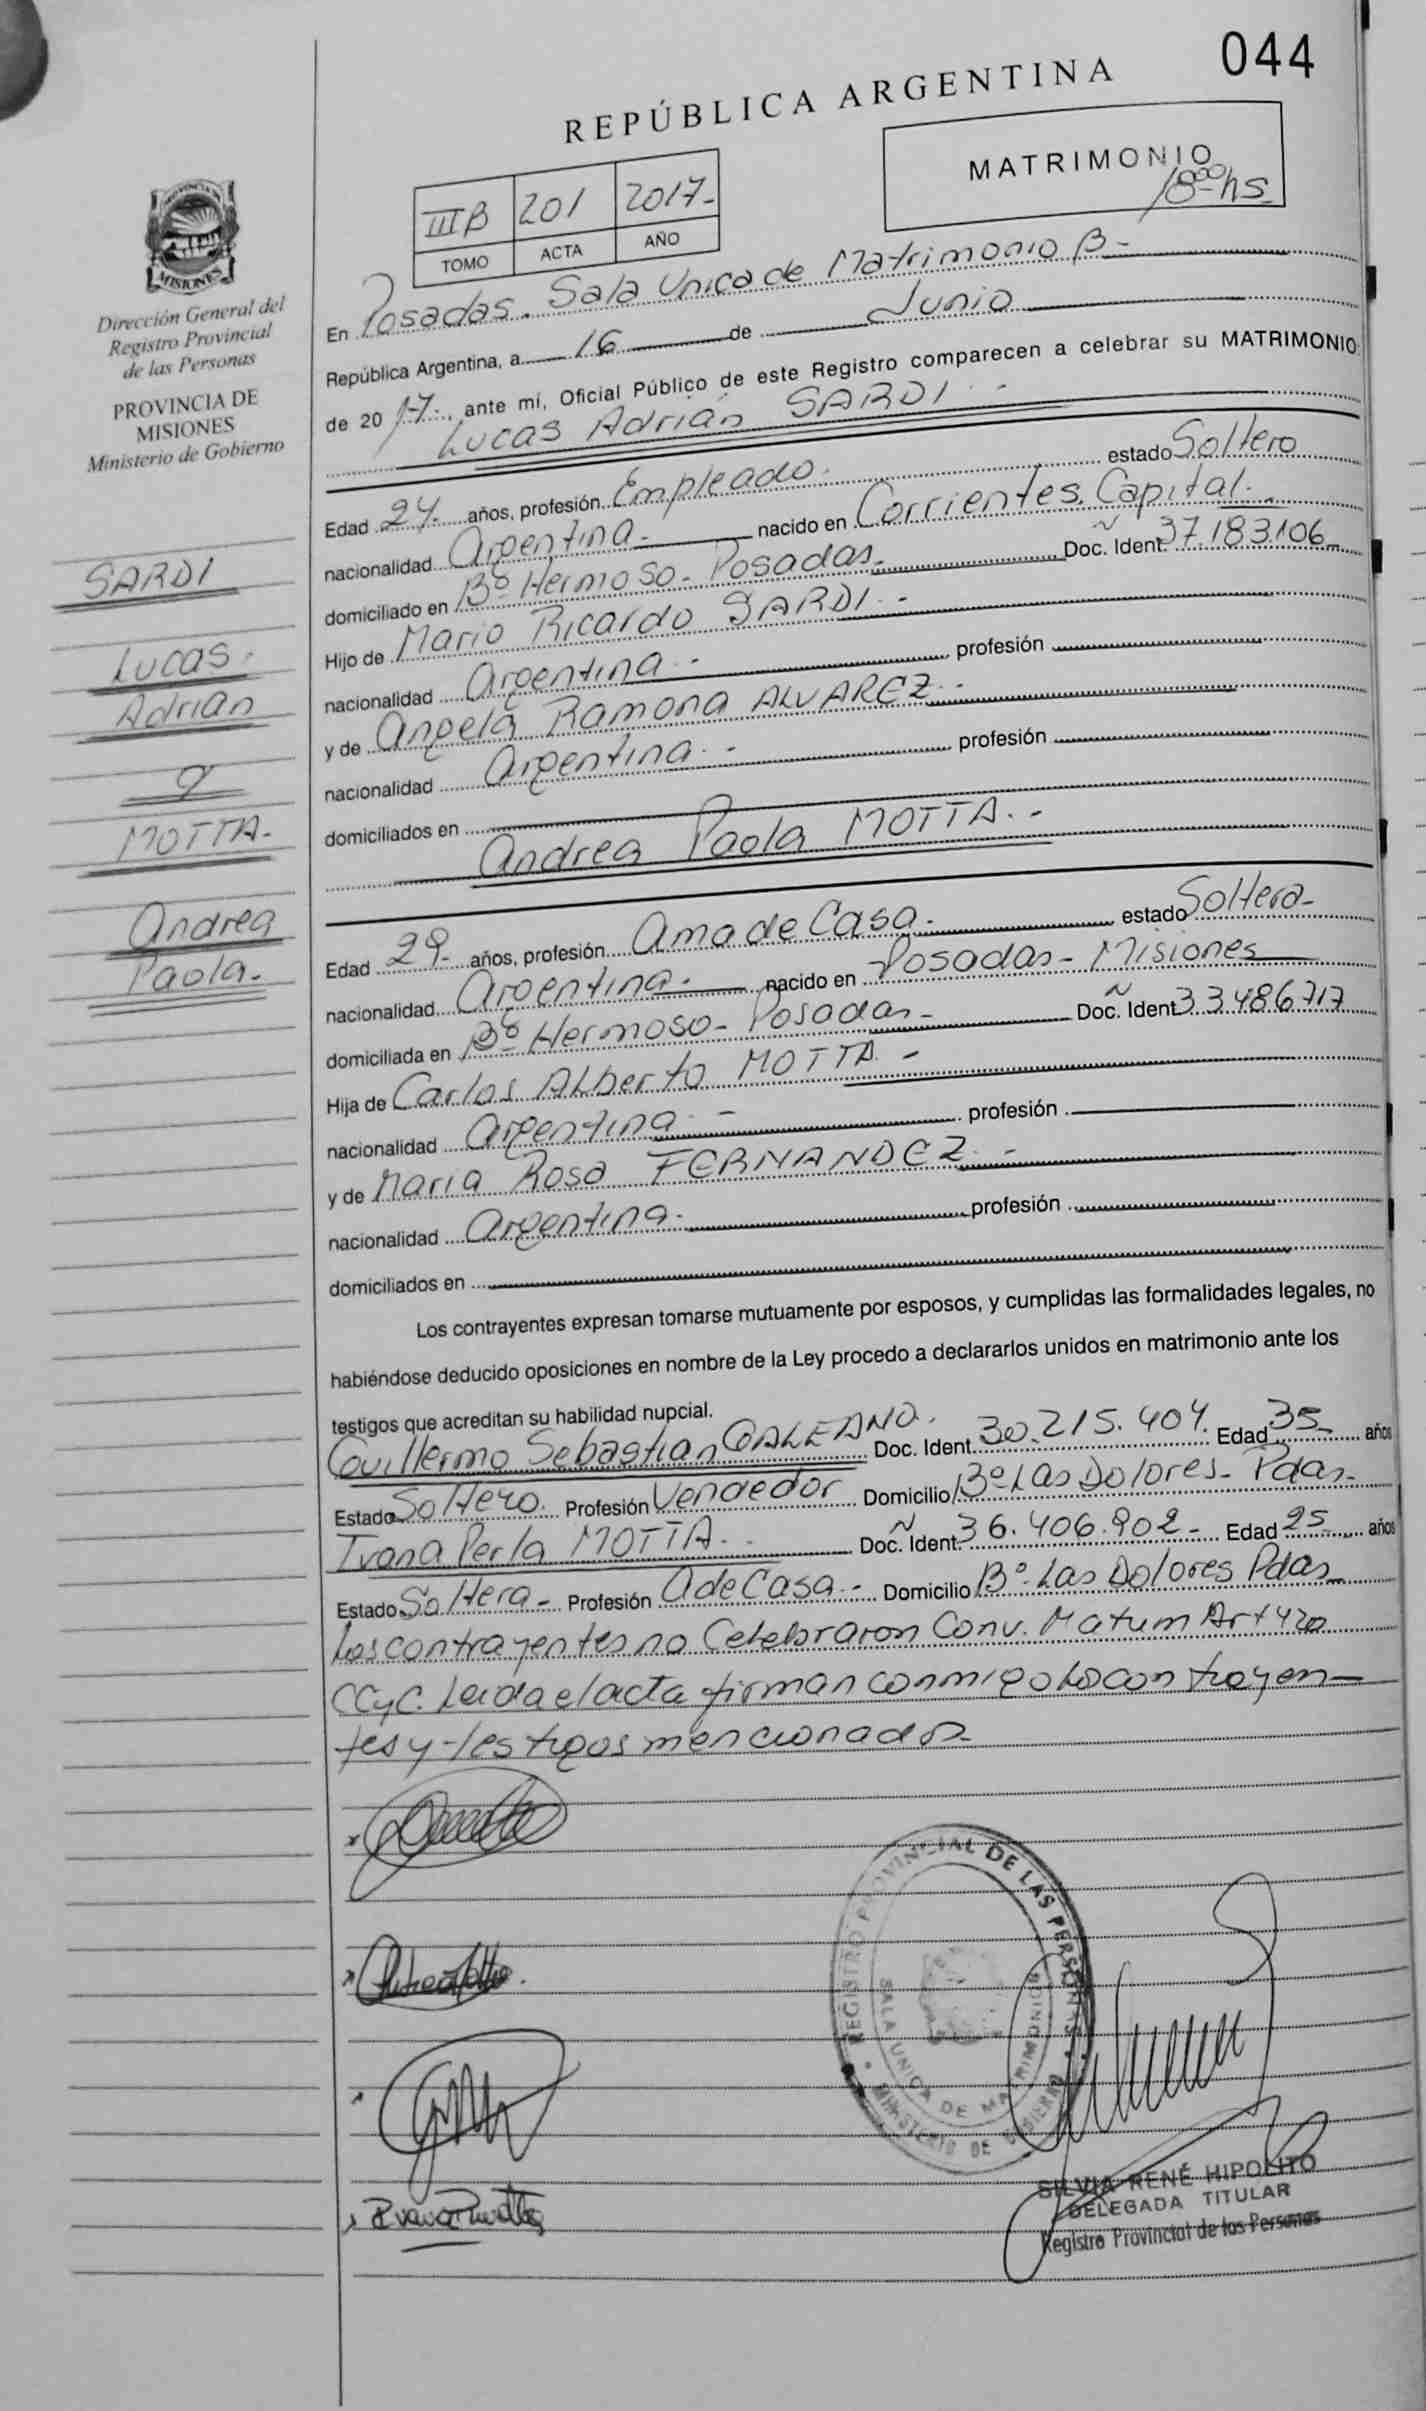 044
REPÚBLICA ARGENTINA
MATRIMONIO
18⁰⁰ hs
III B 201 2017-
TOMO ACTA AÑO
PROVINCIA DE MISIONES
Dirección General del
Registro Provincial
de las Personas
PROVINCIA DE
MISIONES
Ministerio de Gobierno
SARDI
Lucas.
Adrián
y
MOTTA-
Andrea
Paola.-
En Posadas. Sala Unica de Matrimonio B-
República Argentina, a 16 de Junio
de 2017., ante mí, Oficial Público de este Registro comparecen a celebrar su MATRIMONIO:
Lucas Adrián SARDI.-
Edad 24. años, profesión Empleado. estado Soltero
nacionalidad Argentina.- nacido en Corrientes. Capital.
domiciliado en Bº Hermoso- Posadas- Doc. Ident. 37.183.106-
Hijo de Mario Ricardo SARDI.-
nacionalidad Argentina.- profesión
y de Angela Ramona ALVAREZ.-
nacionalidad Argentina.- profesión
domiciliados en
Andrea Paola MOTTA.-
Edad 29- años, profesión Ama de Casa.- estado Soltera-
nacionalidad Argentina.- nacido en Posadas- Misiones
domiciliada en Bº Hermoso- Posadas- Doc. Ident 33.486.717
Hija de Carlos Alberto MOTTA.-
nacionalidad Argentina.- profesión
y de Maria Rosa FERNANDEZ.-
nacionalidad Argentina.- profesión
domiciliados en
Los contrayentes expresan tomarse mutuamente por esposos, y cumplidas las formalidades legales, no
habiéndose deducido oposiciones en nombre de la Ley procedo a declararlos unidos en matrimonio ante los
testigos que acreditan su habilidad nupcial.
Guillermo Sebastian GALEANO. Doc. Ident. 30.215.404. Edad 35- años
Estado Soltero. Profesión Vendedor Domicilio Bº Las Dolores- Pdas-
Ivana Perla MOTTA.- Doc. Ident. 36.406.902- Edad 25 años
Estado Soltera- Profesión A de Casa.- Domicilio Bº Las Dolores Pdas-
Los contrayentes no Celebraron Conv. Matrim Art 420
CCyC. Leida el acta firman conmigo los contrayen-
tes y testigos mencionados-
REGISTRO PROVINCIAL DE LAS PERSONAS
SALA UNICA DE MATRIMONIOS
MINISTERIO DE GOBIERNO
SILVIA RENÉ HIPOLITO
DELEGADA TITULAR
Registro Provincial de las Personas